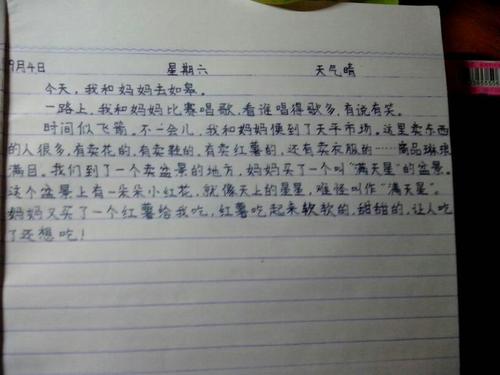 9月4日 星期六 天气晴
今天,我和妈妈去如皋。
一路上,我和妈妈比赛唱歌,看谁唱得歌多,有说有笑。
时间似飞箭。不一会儿,我和妈妈便到了天平市场。这里卖东西
的人很多,有卖花的,有卖鞋的,有卖红薯的,还有卖衣服的……商品琳琅
满目。我们到了一个卖盆景的地方,妈妈买了一个叫“满天星”的盆景。
这个盆景上有一朵朵小红花,就像天上的星星,难怪叫作“满天星”。
妈妈又买了一个红薯给我吃,红薯吃起来软软的,甜甜的,让人吃
了还想吃!